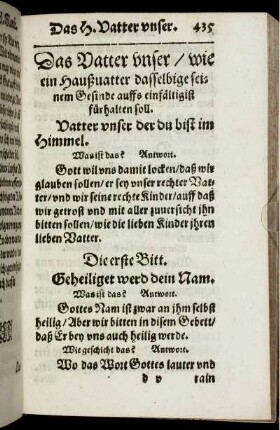 Das H. Vatter vnser. 435
Das Vatter vnser / wie
ein Haußuatter dasselbige sei-
nem Gesinde auffs einfältigist
fürhalten soll.
Vatter vnser der du bist im
Himmel.
Was ist das? Antwort.
Gott wil vns damit locken/daß wir
glauben sollen/er sey vnser rechter Vat-
ter/vnd wir seine rechte Kinder/auff daß
wir getrost vnd mit aller zuuersicht jhn
bitten sollen/wie die lieben Kinder jhren
lieben Vatter.
Die erste Bitt.
Geheiliget werd dein Nam.
Was ist das? Antwort.
Gottes Nam ist zwar an jhm selbst
heilig/Aber wir bitten in disem Gebett/
daß Er bey vns auch heilig werde.
Wie geschicht das? Antwort.
Wo das Wort Gottes lauter vnd
d v rain